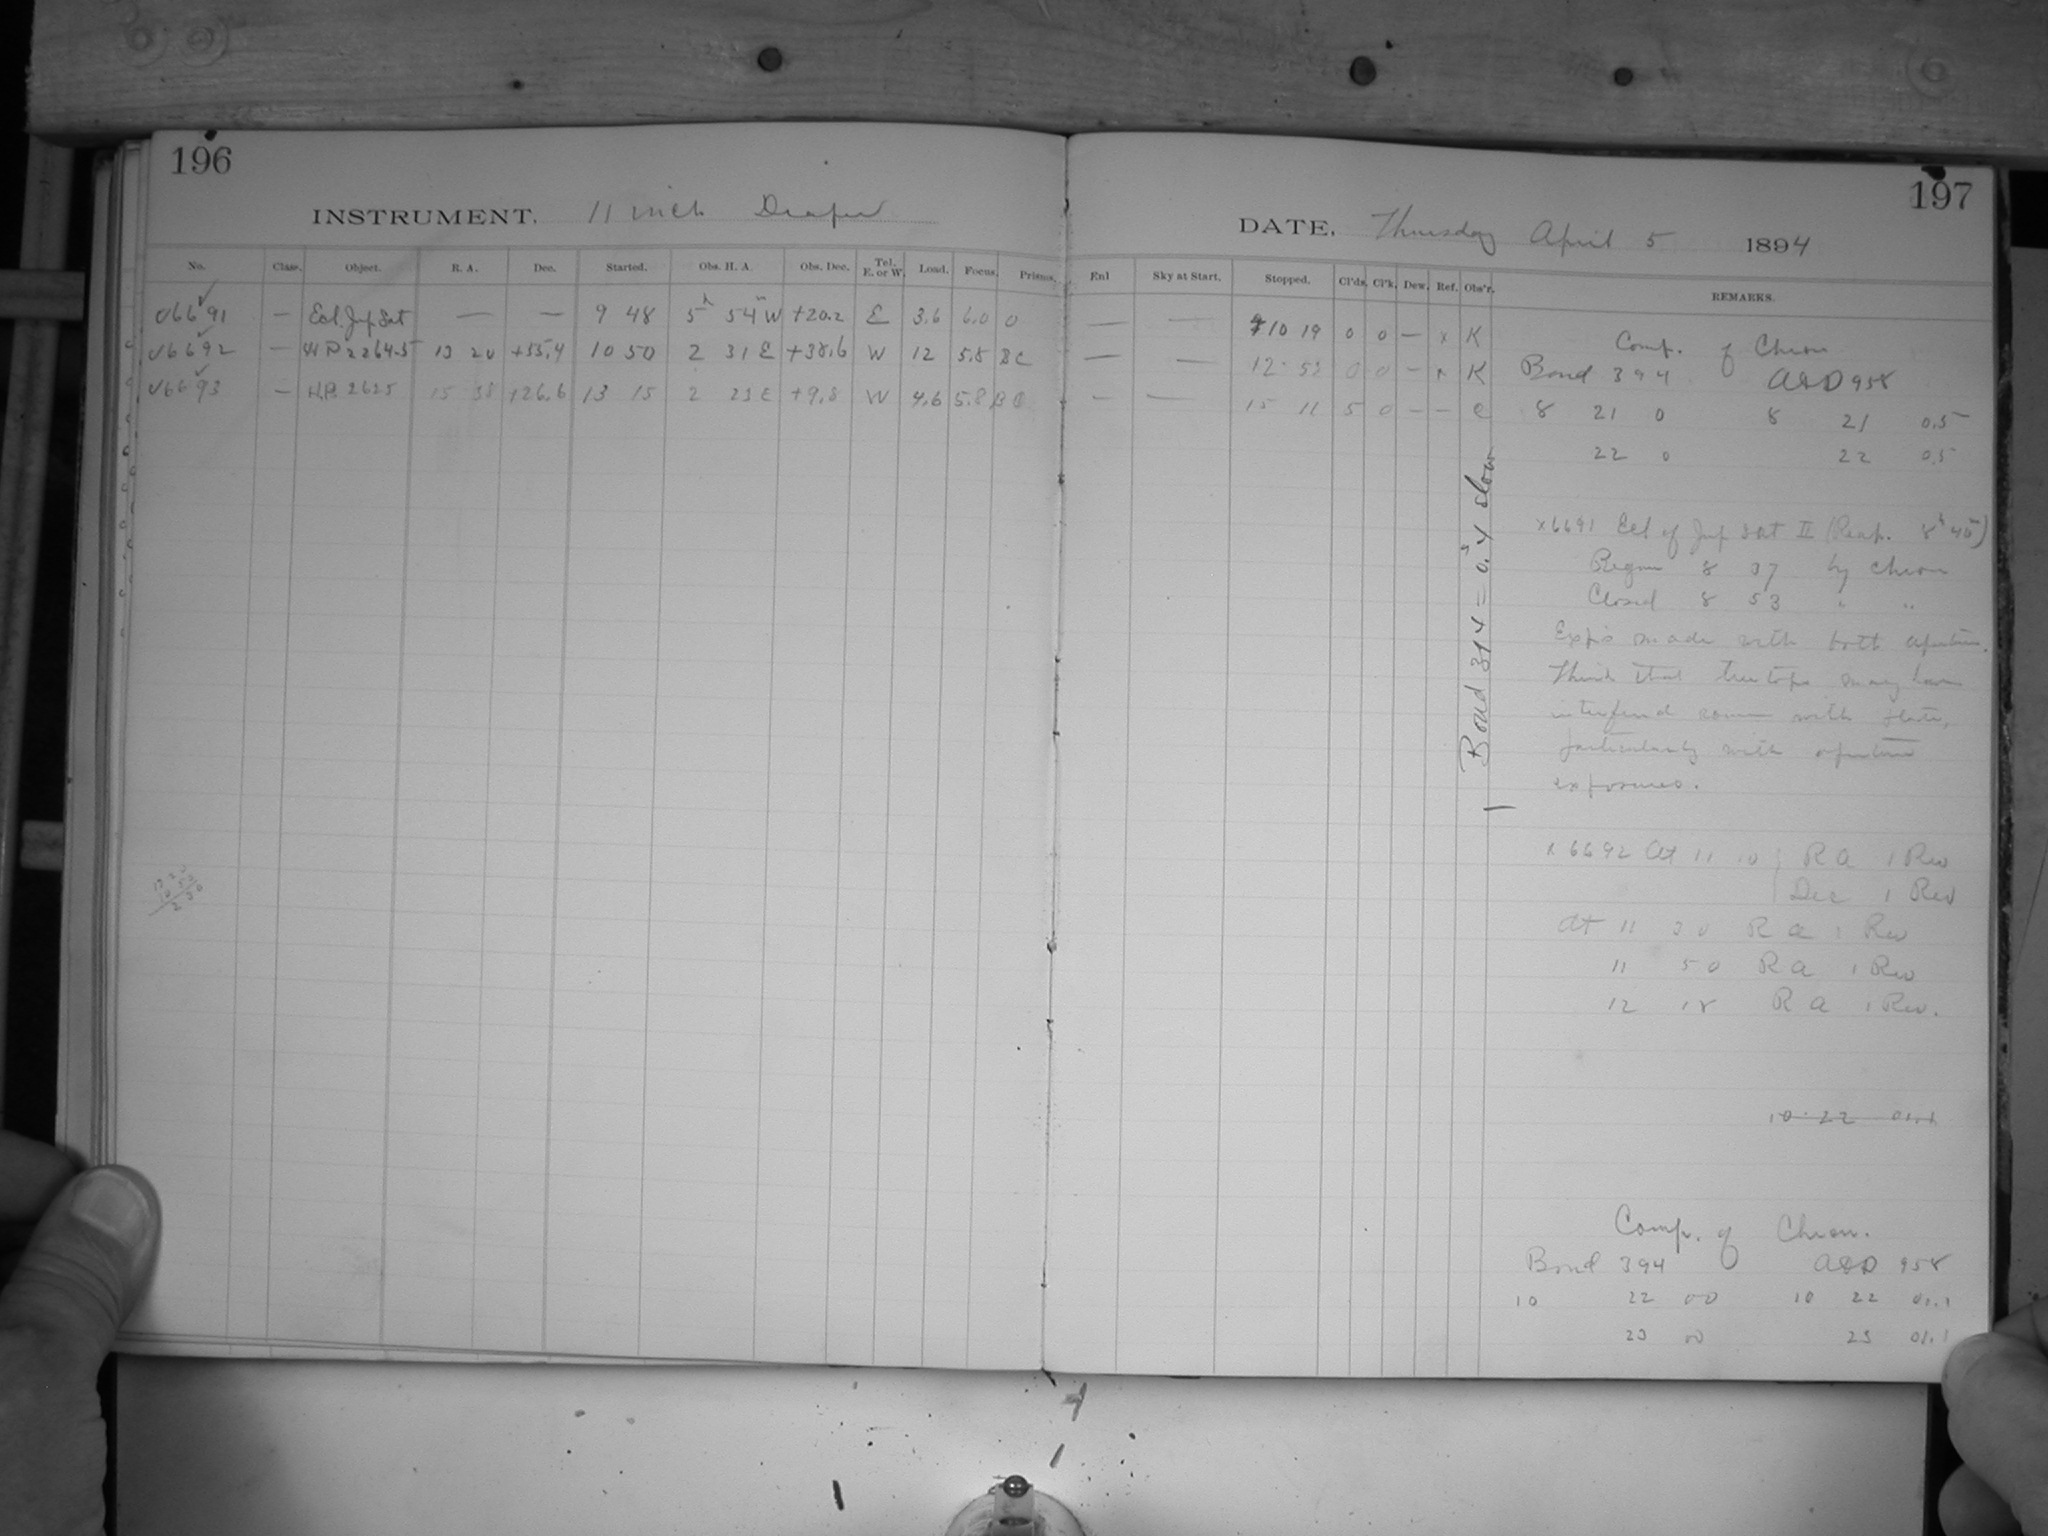 196
INSTRUMENT. 11 inch Draper
No. Class. Object. R. A. Dec. Started. Obs. H. A. Obs. Dec. Tel. E. or W. Load. Focus. Prisms.
06691 — Ecl. Jup. Sat — — 9 48 5h 54m W +20.2 E 3.6 6.0 0
06692 — H.P. 2264.5 13 20 +55.4 10 50 2 31 E +38.6 W 12 5.8 BC
06693 — H.P. 2625 15 38 +26.6 13 15 2 23 E +9.8 W 4.6 5.8 BC
197
DATE. Thursday April 5 1894
Enl Sky at Start. Stopped. Cl'ds. Cl'k. Dew. Ref. Obs'r. REMARKS.
— — 10 19 0 0 — x K
— — 12 52 0 0 — x K
— — 15 11 5 0 — — C
Bond 394 = 0.s4 slow
Comp. of Chron
Bond 394 A&D 958
8 21 0 8 21 0.5
22 0 22 0.5
x6691 Ecl of Jup Sat II (Reap. 8h 45m)
Began 8 37 by Chron
Closed 8 53 " "
Exp's made with both apertures.
Think that tree tops may have
interfered some with plate,
particularly with aperture
exposures.
x 6692 At 11 10 R A 1 Rev
Dec 1 Rev
At 11 30 R A 1 Rev
11 50 R A 1 Rev
12 18 R A 1 Rev.
10 22 01.1
Comp. of Chron.
Bond 394 A&D 958
10 22 00 10 22 01.1
23 00 23 01.1